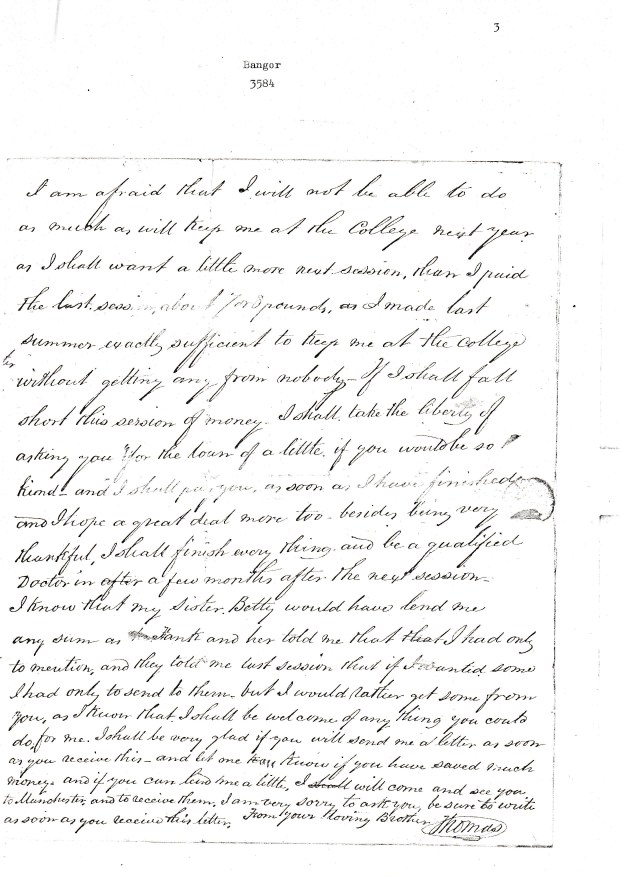 3
Bangor
3584
I am afraid that I will not be able to do
as much as will keep me at the College next year
as I shall want a little more next session, than I paid
the last session, about 7 or 8 pounds, as I made last
summer exactly sufficient to keep me at the College
without getting any from nobody - If I shall fall
short this session of money. I shall take the liberty of
asking you for the loan of a little, if you would be so
kind - and I shall pay you, as soon as I have finished
and I hope a great deal more too - besides being very
thankful, I shall finish every thing and be a qualified
Doctor in after a few months after the next session -
I know that my Sister Betty would have lend me
any sum as Hank and her told me that that I had only
to mention, and they told me last session that if I wanted some
I had only to send to them - but I would rather get some from
you, as I know that I shall be welcome of any thing you could
do, for me. I shall be very glad if you will send me a letter as soon
as you receive this - and let me know if you have saved much
money and if you can lend me a little, I shall will come and see you
to Manchester, and to receive them, I am very sorry to ask you, be sure to write
as soon as you receive this letter, From your loving Brother Thomas